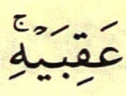 عَقِبَيْهِۚ